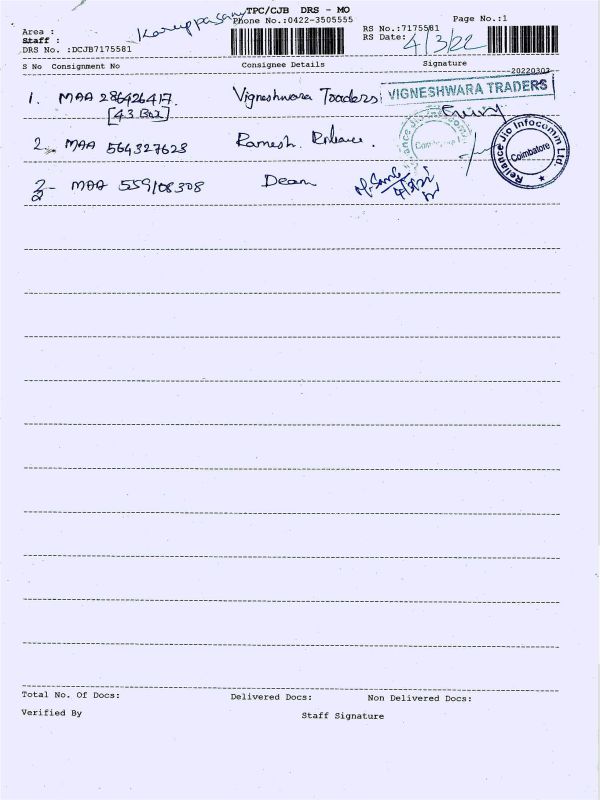 Karuppasamy TPC/CJB DRS - MO
Area : Phone No.:0422-3505555 Page No.:1
Staff : RS No.:7175581
DRS No. :DCJB7175581 RS Date: 4/3/22
S No Consignment No Consignee Details Signature
20220303
1. MAA 286426417. Vigneshwara Traders VIGNESHWARA TRADERS
[43 Box]
2 MAA 564327623 Ramesh. Reliance. Reliance Jio Infocomm Ltd. Coimbatore
3 MAA 559108308 Dean 4/3/22
Total No. Of Docs: Delivered Docs: Non Delivered Docs:
Verified By Staff Signature